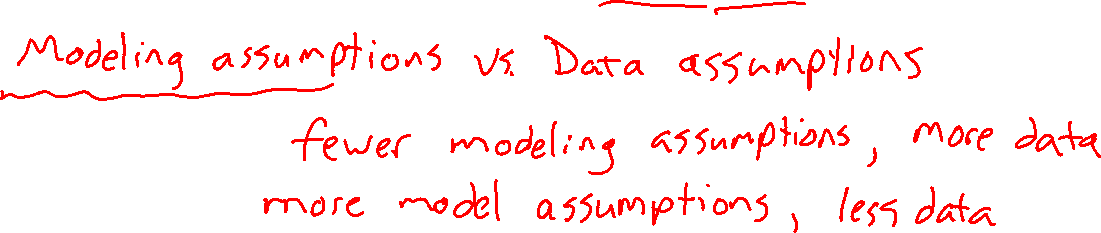 Modeling assumptions vs. Data assumptions
fewer modeling assumptions, more data
more model assumptions, less data